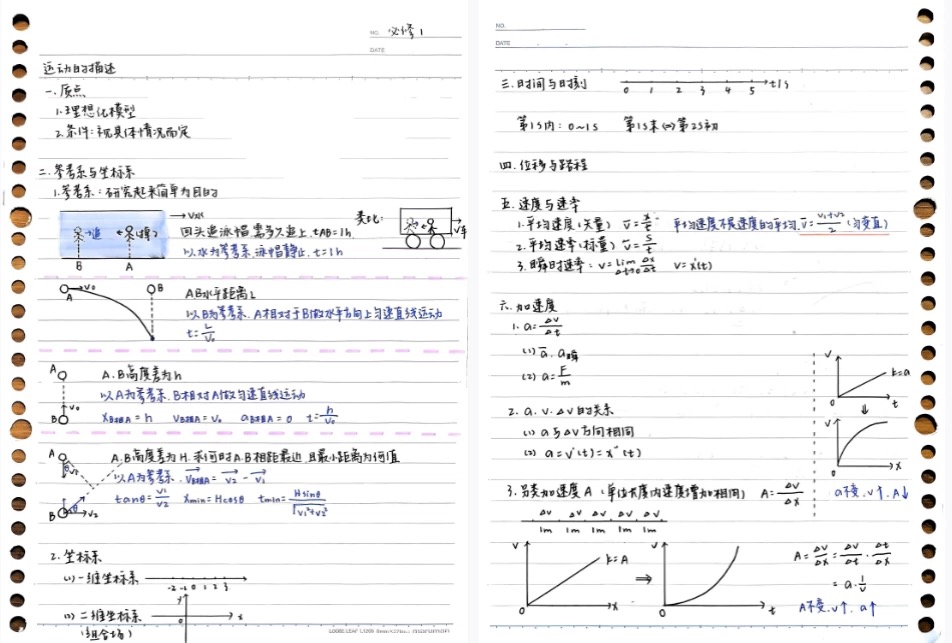 NO. 必修1
DATE
运动的描述
一.质点
1.理想化模型
2.条件:视具体情况而定
二.参考系与坐标系
1.参考系:研究起来简单为目的
→V水
追
掉
B A
回头追泳帽需多久追上.tAB=1h.
以水为参考系.泳帽静止.t=1h
类比:
V车
A V₀ B
AB水平距离L
以B为参考系.A相对于B做水平方向上匀速直线运动
t=L/V₀
A
A.B高度差为h
以A为参考系.B相对A做匀速直线运动
V₀
B
xB对A=h vB对A=v₀ aB对A=0 t=h/v₀
A
A.B高度差为H.求何时A.B相距最近.且最小距离为何值
θ V₁
以A为参考系.vB对A=v₂-v₁
tanθ=v₁/v₂ xmin=Hcosθ tmin=Hsinθ/√v₁²+v₂²
B θ V₂
2.坐标系
(1)一维坐标系
-2 -1 0 1 2 3
(2)二维坐标系
y
x
0
(组合场)
NO.
DATE
三.时间与时刻
0 1 2 3 4 5 t/s
第1s内:0~1s 第1s末⇔第2s初
四.位移与路程
五.速度与速率
1.平均速度(矢量) v̄=x/t 平均速度不是速度的平均.v̄=(v₁+v₂)/2 (匀变直)
2.平均速率(标量) v̄=s/t
3.瞬时速率:v=lim Δt→0 Δx/Δt v=x'(t)
六.加速度
1.a=Δv/Δt
(1)ā.a瞬
(2)a=F/m
v
k=a
0 t
⇓
v
0 x
2.a.v.Δv的关系
(1)a与Δv方向相同
(2)a=v'(t)=x''(t)
3.另类加速度A(单位长度内速度增加相同) A=Δv/Δx a不变,v↑,A↓
Δv Δv Δv Δv Δv
1m 1m 1m 1m 1m
v
k=A
0 x
⇒
v
0 t
A=Δv/Δx=Δv/Δt·Δt/Δx
=a·1/v
A不变,v↑,a↑